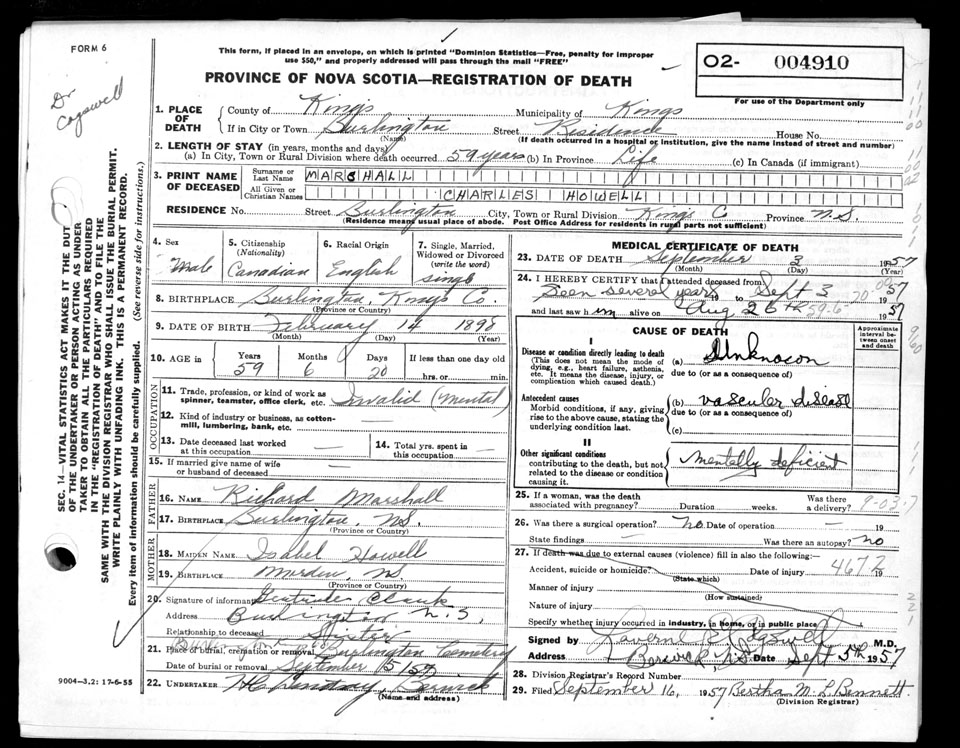 FORM 6
This form, if placed in an envelope, on which is printed "Dominion Statistics—Free, penalty for improper
use $50," and properly addressed will pass through the mail "FREE"
PROVINCE OF NOVA SCOTIA—REGISTRATION OF DEATH
O2- 004910
For use of the Department only
Dr
Cogswell
1. PLACE OF DEATH County of Kings Municipality of Kings
If in City or Town Burlington Street Residence House No.
(Name) (If death occurred in a hospital or institution, give the name instead of street and number)
2. LENGTH OF STAY (in years, months and days)
(a) In City, Town or Rural Division where death occurred 59 years (b) In Province Life (c) In Canada (if immigrant)
3. PRINT NAME OF DECEASED Surname or Last Name MARSHALL
All Given or Christian Names CHARLES HOWELL
RESIDENCE No. Street Burlington City, Town or Rural Division Kings C Province N.S.
(Residence means usual place of abode. Post Office Address for residents in rural parts not sufficient)
4. Sex Male
5. Citizenship (Nationality) Canadian
6. Racial Origin English
7. Single, Married, Widowed or Divorced (write the word) single
8. BIRTHPLACE Burlington, Kings Co.
(Province or County)
9. DATE OF BIRTH February 14 1898
(Month) (Day) (Year)
10. AGE in Years 59 Months 6 Days 20 If less than one day old
hrs. or min.
OCCUPATION
11. Trade, profession, or kind of work as spinner, teamster, office clerk, etc. Invalid (Mental)
12. Kind of industry or business, as cotton-mill, lumbering, bank, etc. —
13. Date deceased last worked at this occupation —
14. Total yrs. spent in this occupation —
15. If married give name of wife or husband of deceased —
FATHER
16. NAME Richard Marshall
17. BIRTHPLACE Burlington, N.S.
(Province or Country)
MOTHER
18. MAIDEN NAME Isabel Howell
19. BIRTHPLACE Morden, N.S.
(Province or Country)
20. Signature of informant Gertrude Clark
Address Burlington N.S.
Relationship to deceased Sister
21. Place of burial, cremation or removal Burlington Cemetery
Date of burial or removal September 5/57
22. UNDERTAKER Berwick
(Name and Address)
9004—3.2: 17-6-55
MEDICAL CERTIFICATE OF DEATH
23. DATE OF DEATH September 3 1957
(Month) (Day) (Year)
24. I HEREBY CERTIFY that I attended deceased from
Seen several years 19 to Sept 3 1957
and last saw him alive on Aug 26th 1957
CAUSE OF DEATH
Approximate interval between onset and death
I
Disease or condition directly leading to death
(This does not mean the mode of dying, e.g., heart failure, asthenia, etc. It means the disease, injury, or complication which caused death.)
(a) Unknown
due to (or as a consequence of)
Antecedent causes
Morbid conditions, if any, giving rise to the above cause, stating the underlying condition last.
(b) vascular disease
due to (or as a consequence of)
(c)
II
Other significant conditions
contributing to the death, but not related to the disease or condition causing it.
mentally deficient
25. If a woman, was the death associated with pregnancy? Duration weeks. Was there a delivery?
26. Was there a surgical operation? no Date of operation — 19
State findings — Was there an autopsy? no
27. If death was due to external causes (violence) fill in also the following:—
Accident, suicide or homicide? Date of injury 19
(State which)
467.2
Manner of injury
(How sustained)
Nature of injury
Specify whether injury occurred in industry, in home, or in public place
Signed by Laverne R Cogswell M.D.
Address Berwick, N.S. Date Sept 5th 1957
28. Division Registrar's Record Number
29. Filed September 16, 1957 Bertha M. L. Bennett.
(Division Registrar)
SEC. 14—VITAL STATISTICS ACT MAKES IT THE DUTY
OF THE UNDERTAKER OR PERSON ACTING AS UNDER
TAKER TO OBTAIN ALL THE PARTICULARS REQUIRED
IN THE "REGISTRATION OF DEATH" AND TO FILE THE
SAME WITH THE DIVISION REGISTRAR WHO SHALL ISSUE THE BURIAL PERMIT.
WRITE PLAINLY WITH UNFADING INK. THIS IS A PERMANENT RECORD.
Every item of information should be carefully supplied. (See reverse side for instructions.)